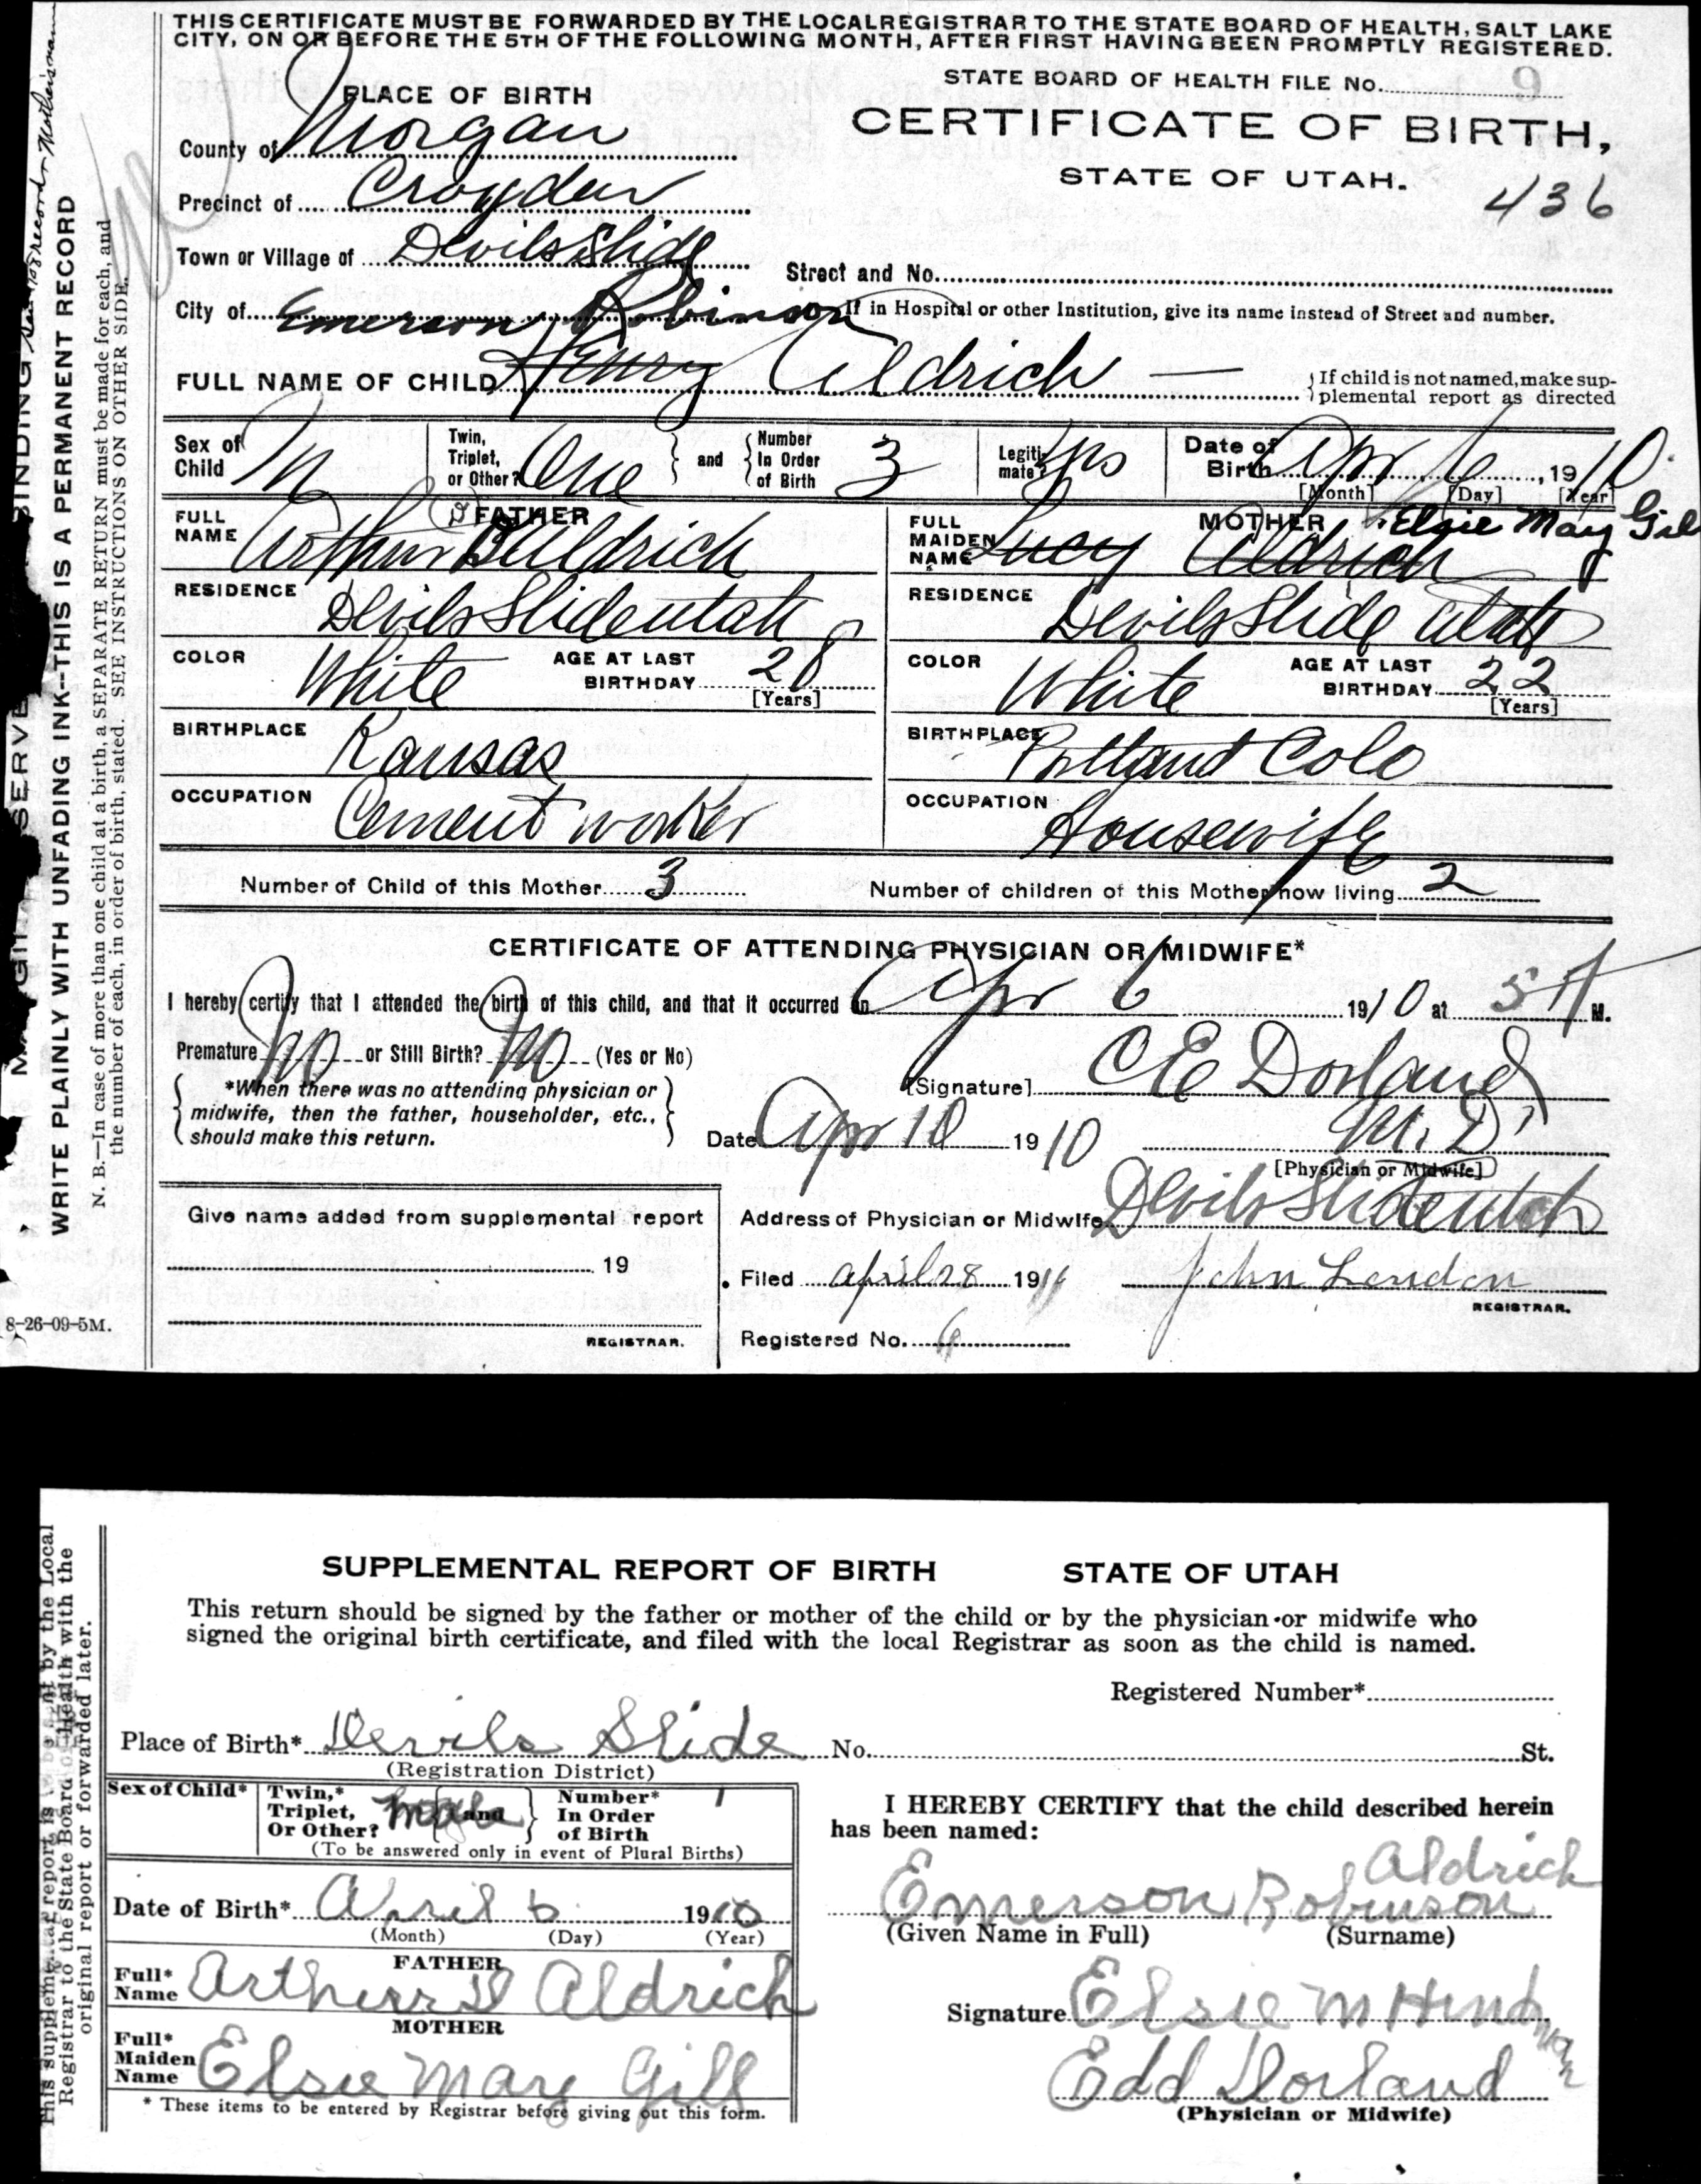 THIS CERTIFICATE MUST BE FORWARDED BY THE LOCAL REGISTRAR TO THE STATE BOARD OF HEALTH, SALT LAKE
CITY, ON OR BEFORE THE 5TH OF THE FOLLOWING MONTH, AFTER FIRST HAVING BEEN PROMPTLY REGISTERED.
STATE BOARD OF HEALTH FILE No. 9
PLACE OF BIRTH
CERTIFICATE OF BIRTH,
County of Morgan
STATE OF UTAH.
436
Precinct of Croyden
Town or Village of Devils Slide
Street and No.
City of
If in Hospital or other Institution, give its name instead of Street and number.
Emerson Robinson
FULL NAME OF CHILD Henry Aldrich —
If child is not named, make supplemental report as directed
Sex of Child M
Twin, Triplet, or Other? One
and
Number In Order of Birth 3
Legitimate? Yes
Date of Birth Apr 6, 1910
[Month] [Day] [Year]
FATHER
FULL NAME Arthur D Aldrich
MOTHER Elsie May Gill
FULL MAIDEN NAME Lucy Aldrich
RESIDENCE Devils Slide Utah
RESIDENCE Devils Slide Utah
COLOR White
AGE AT LAST BIRTHDAY 28
[Years]
COLOR White
AGE AT LAST BIRTHDAY 22
[Years]
BIRTHPLACE Kansas
BIRTHPLACE Portland Colo
OCCUPATION Cement worker
OCCUPATION Housewife
Number of Child of this Mother 3
Number of children of this Mother now living 2
CERTIFICATE OF ATTENDING PHYSICIAN OR MIDWIFE*
I hereby certify that I attended the birth of this child, and that it occurred on Apr 6 1910 at 5 A M.
Premature No or Still Birth? No (Yes or No)
*When there was no attending physician or
midwife, then the father, householder, etc.,
should make this return.
[Signature] C E Dorland
Date Apr 10 1910
M. D.
[Physician or Midwife]
Give name added from supplemental report
19
REGISTRAR.
Address of Physician or Midwife Devils Slide Utah
Filed April 28 191
John London
REGISTRAR.
Registered No. 6
8-26-09-5M.
WRITE PLAINLY WITH UNFADING INK--THIS IS A PERMANENT RECORD
N. B.—In case of more than one child at a birth, a SEPARATE RETURN must be made for each, and
the number of each, in order of birth, stated. SEE INSTRUCTIONS ON OTHER SIDE.
SUPPLEMENTAL REPORT OF BIRTH STATE OF UTAH
This return should be signed by the father or mother of the child or by the physician or midwife who
signed the original birth certificate, and filed with the local Registrar as soon as the child is named.
Registered Number*
Place of Birth* Devils Slide No. St.
(Registration District)
Sex of Child*
Twin,* Triplet, Or Other? Male
and
Number* In Order of Birth 1
(To be answered only in event of Plural Births)
Date of Birth* April 6 1910
(Month) (Day) (Year)
FATHER
Full* Name Artherr D Aldrich
MOTHER
Full* Maiden Name Elsie May Gill
* These items to be entered by Registrar before giving out this form.
I HEREBY CERTIFY that the child described herein
has been named:
Aldrich
Emerson Robinson
(Given Name in Full) (Surname)
Signature Elsie M Hindman
Edd Dorland
(Physician or Midwife)
This supplemental report is to be sent by the Local
Registrar to the State Board of Health with the
original report or forwarded later.